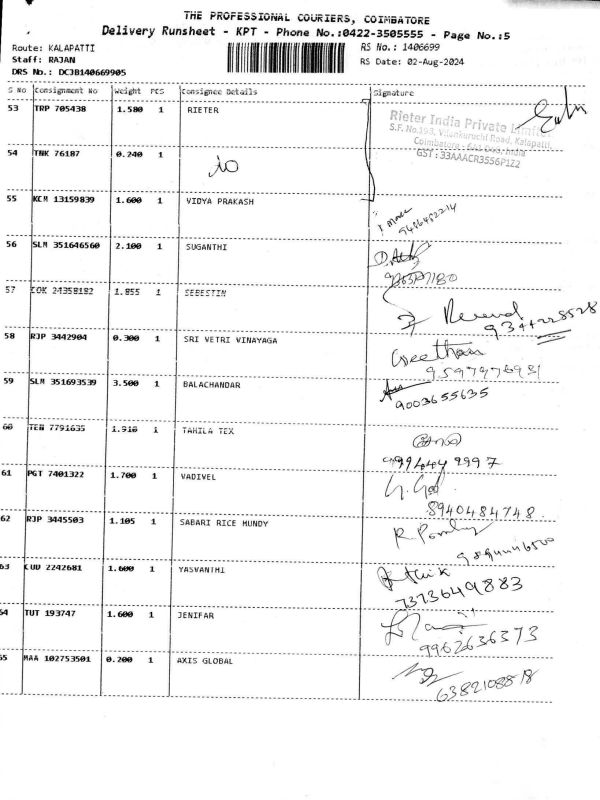 THE PROFESSIONAL COURIERS, COIMBATORE
Delivery Runsheet - KPT - Phone No.:0422-3505555 - Page No.:5
Route: KALAPATTI RS No.: 1406699
Staff: RAJAN RS Date: 02-Aug-2024
DRS No.: DCJB140669905
S No Consignment No Weight PCS Consignee Details Signature
53 TRP 705438 1.580 1 RIETER
Rieter India Private Limited
S.F. No.193, Vilankuruchi Road, Kalapatti,
GST : 33AAACR3556P1Z2
54 TNK 76187 0.240 1
55 KCM 13159839 1.600 1 VIDYA PRAKASH
56 SLM 351646560 2.100 1 SUGANTHI
57 COK 24358182 1.855 1 SEBESTIN
9344228528
58 RJP 3442904 0.300 1 SRI VETRI VINAYAGA
Geetham
9597976931
59 SLM 351693539 3.500 1 BALACHANDAR
9003655635
60 TEN 7791635 1.910 1 TAHILA TEX
61 PGT 7401322 1.700 1 VADIVEL
8940484748
62 RJP 3445503 1.105 1 SABARI RICE MUNDY
63 CUD 2242681 1.600 1 YASVANTHI
7373649883
64 TUT 193747 1.600 1 JENIFAR
9962636373
65 MAA 102753501 0.200 1 AXIS GLOBAL
6382108818